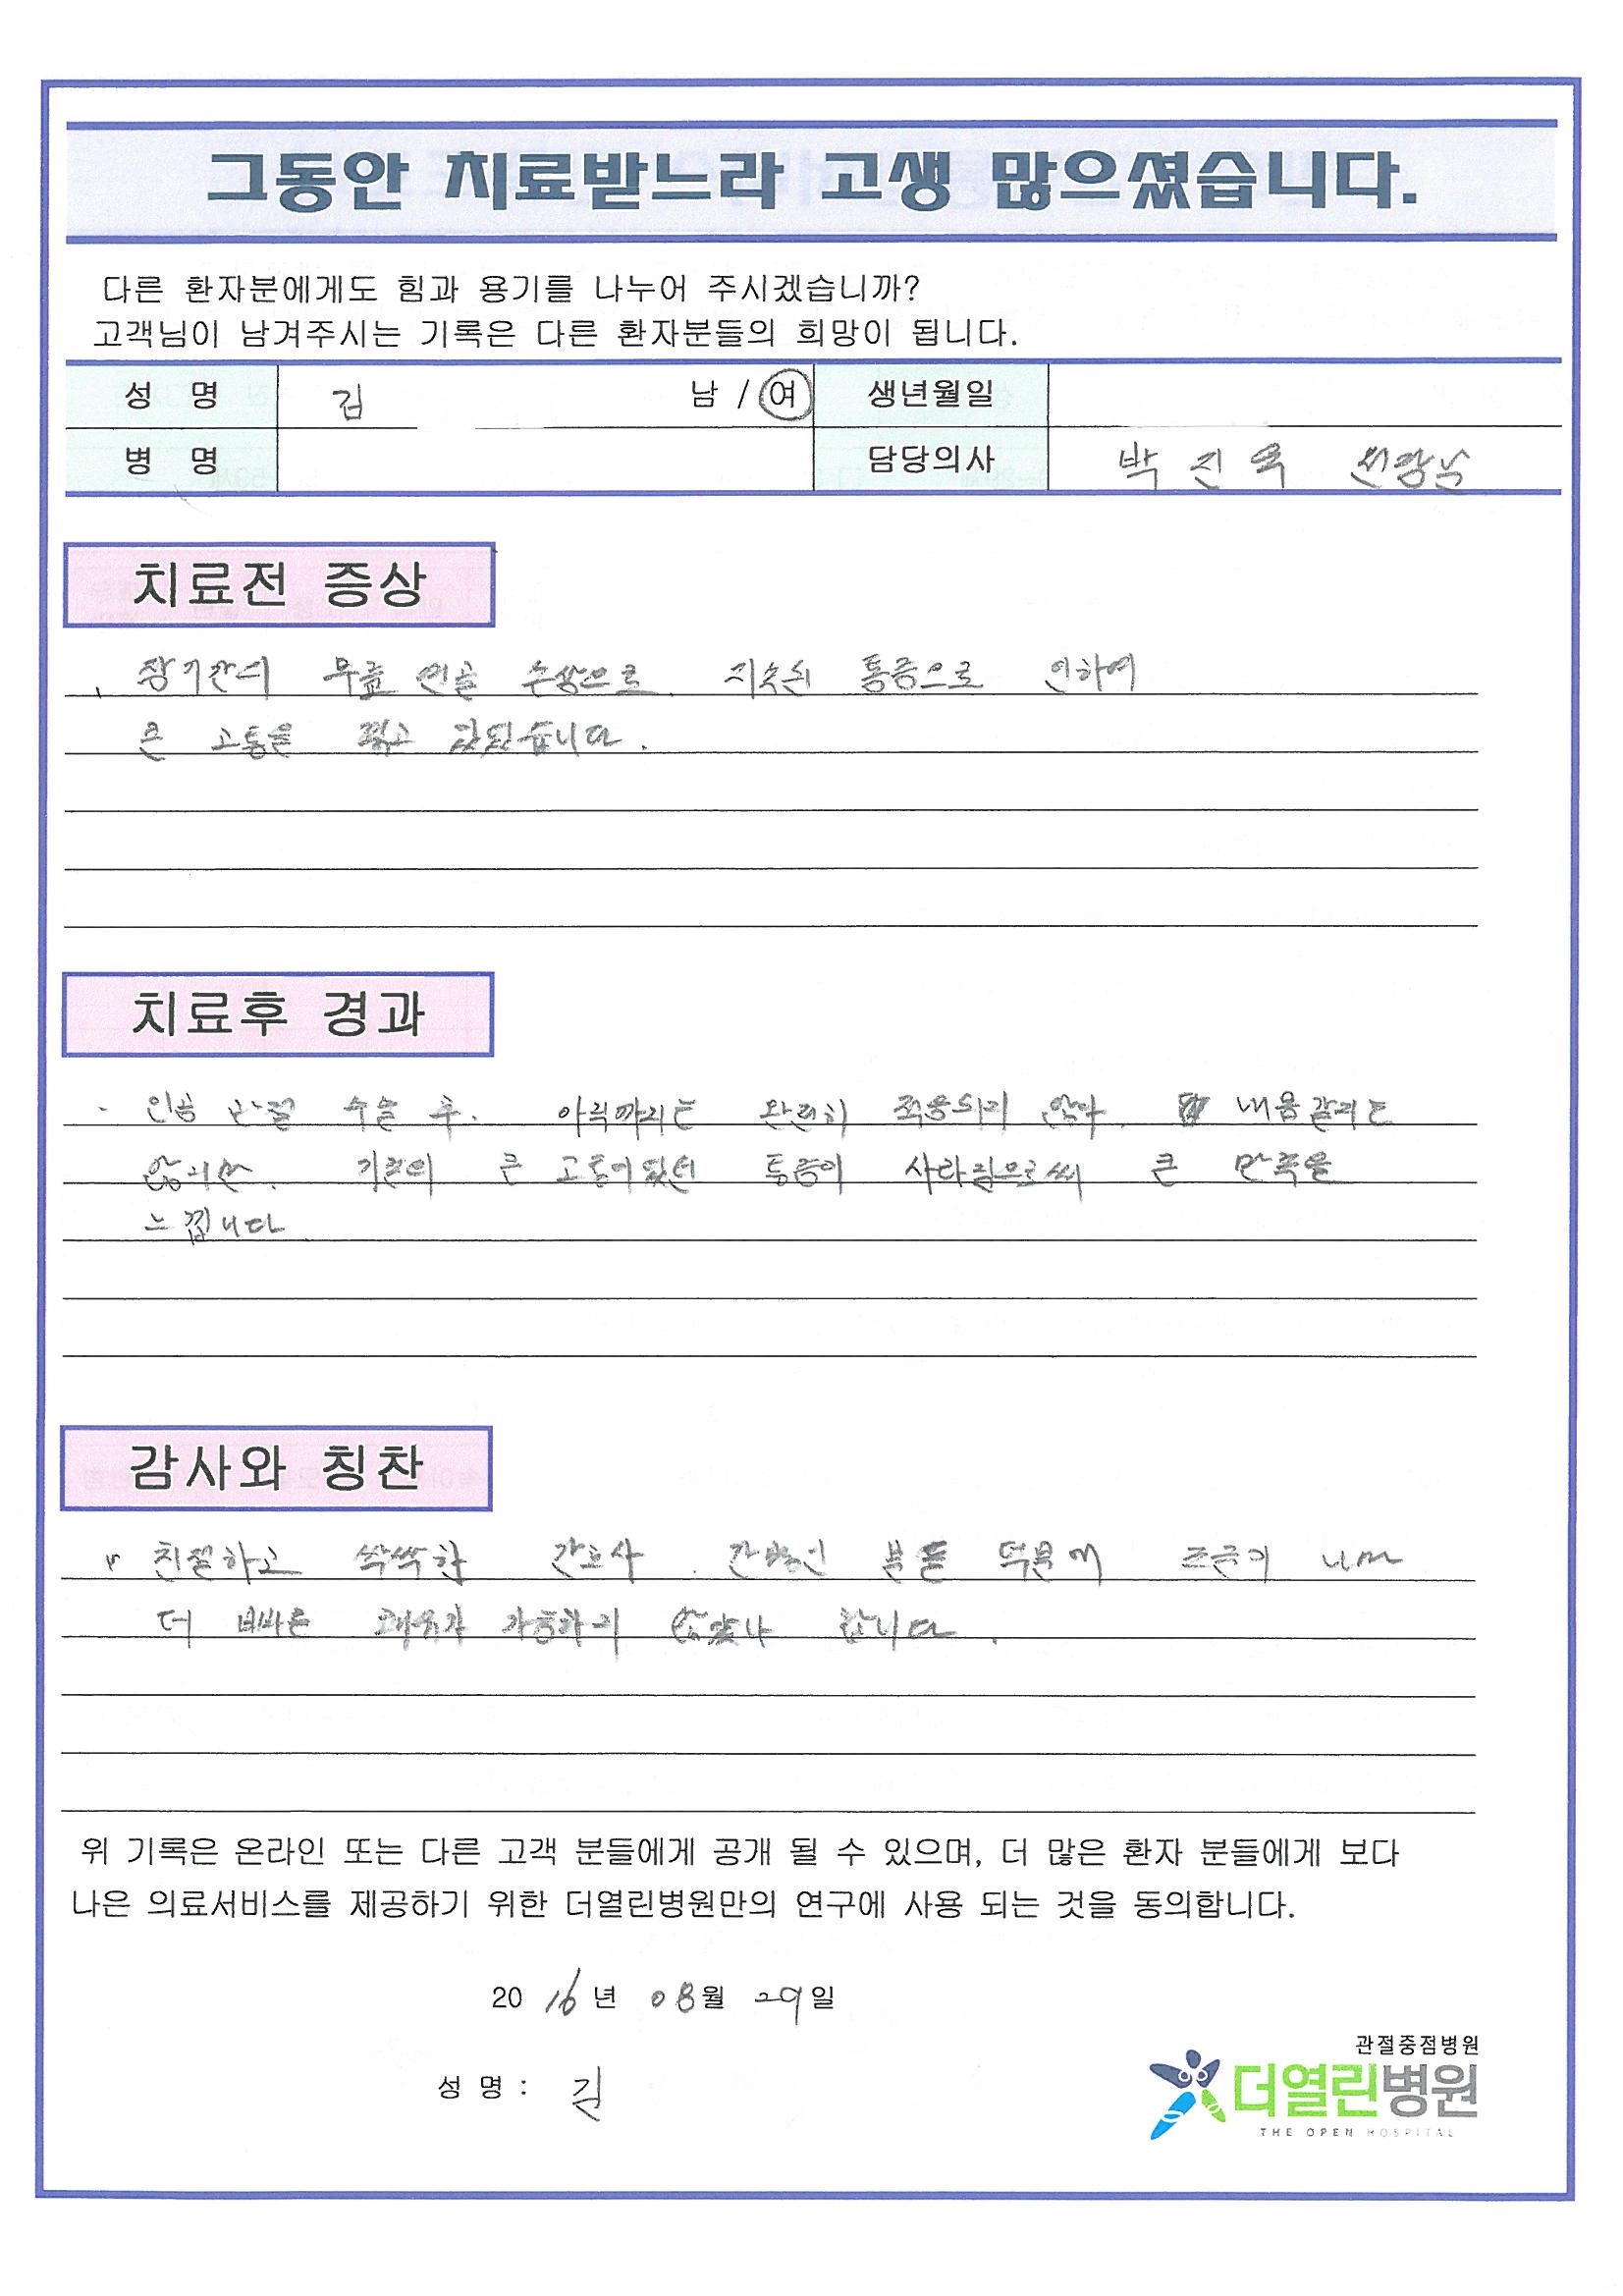 그동안 치료받느라 고생 많으셨습니다.
다른 환자분에게도 힘과 용기를 나누어 주시겠습니까?
고객님이 남겨주시는 기록은 다른 환자분들의 희망이 됩니다.
성 명 김 남 / 여 생년월일
병 명 담당의사 박진욱 원장님
치료전 증상
장기간의 무릎 연골 손상으로. 지속된 통증으로 인하여
큰 고통을 겪고 있었습니다.
치료후 경과
인공 관절 수술 후. 아직까지는 완전히 적응되지 않아. 내몸같지는
않지만. 기존의 큰 고통이었던 통증이 사라짐으로써 큰 만족을
느낍니다
감사와 칭찬
친절하고 싹싹한 간호사. 간병인 분들 덕분에 조금이나마
더 빠른 쾌유가 가능하지 않았나 합니다.
위 기록은 온라인 또는 다른 고객 분들에게 공개 될 수 있으며, 더 많은 환자 분들에게 보다
나은 의료서비스를 제공하기 위한 더열린병원만의 연구에 사용 되는 것을 동의합니다.
2016년 08월 29일
관절중점병원
더열린병원
THE OPEN HOSPITAL
성 명 : 김